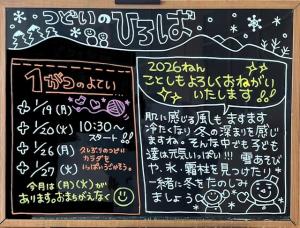 つどいのひろば
1がつのよてい...
1/19(月)
1/20(火)
1/26(月)
1/27(火)
10:30〜
スタート!!
久しぶりのつどい
カラダを
いっぱいうごかそう。
今月は(月)(火)が
あります。おまちがえなく
2026ねん
ことしもよろしくおねがい
いたします!!
肌に感じる風もますます
冷たくなり冬の深まりを感じ
ますね。そんな中でも子ども
達は元気いっぱい!!! 雪あそび
や、氷、霜柱を見つけたり
一緒に冬をたのしみ
ましょう